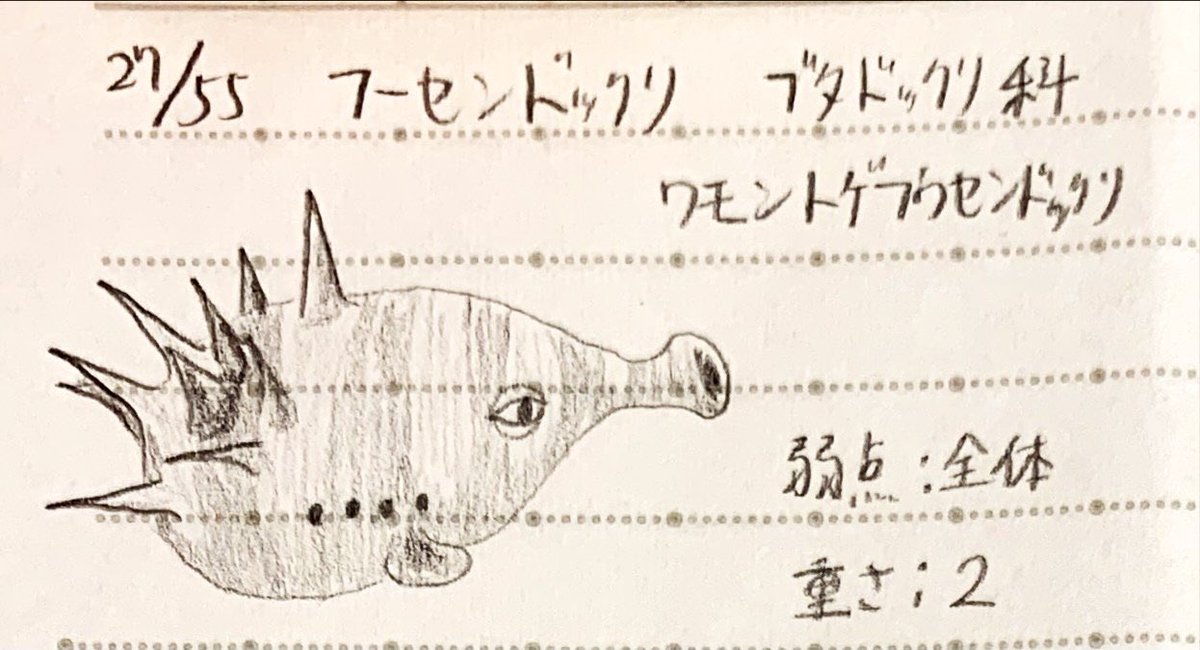 27/55 フーセンドックリ ブタドックリ科
ワモントゲフウセンドックリ
弱点:全体
重さ:2